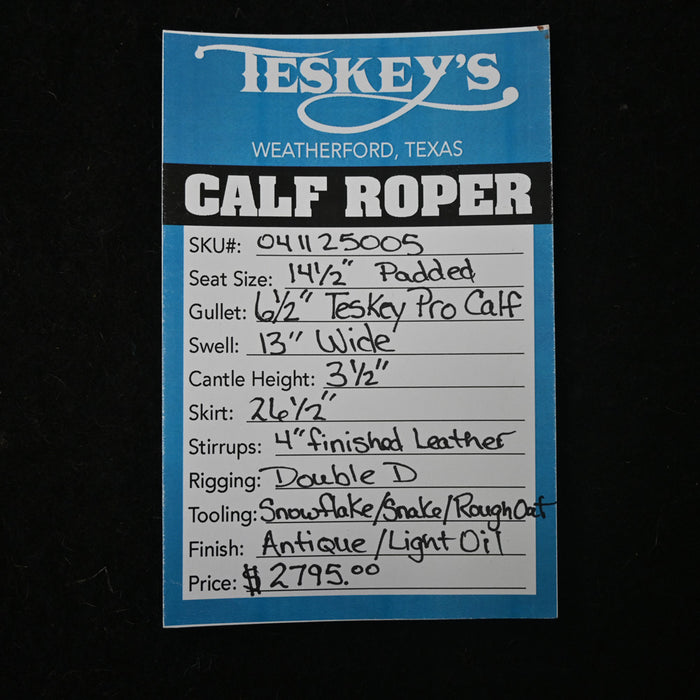 TESKEY'S
WEATHERFORD, TEXAS
CALF ROPER
SKU#: 041125005
Seat Size: 14 1/2" Padded
Gullet: 6 1/2" Teskey Pro Calf
Swell: 13" Wide
Cantle Height: 3 1/2"
Skirt: 26 1/2"
Stirrups: 4" finished Leather
Rigging: Double D
Tooling: Snowflake/Snake/Rough Oat
Finish: Antique/Light Oil
Price: $2795.00